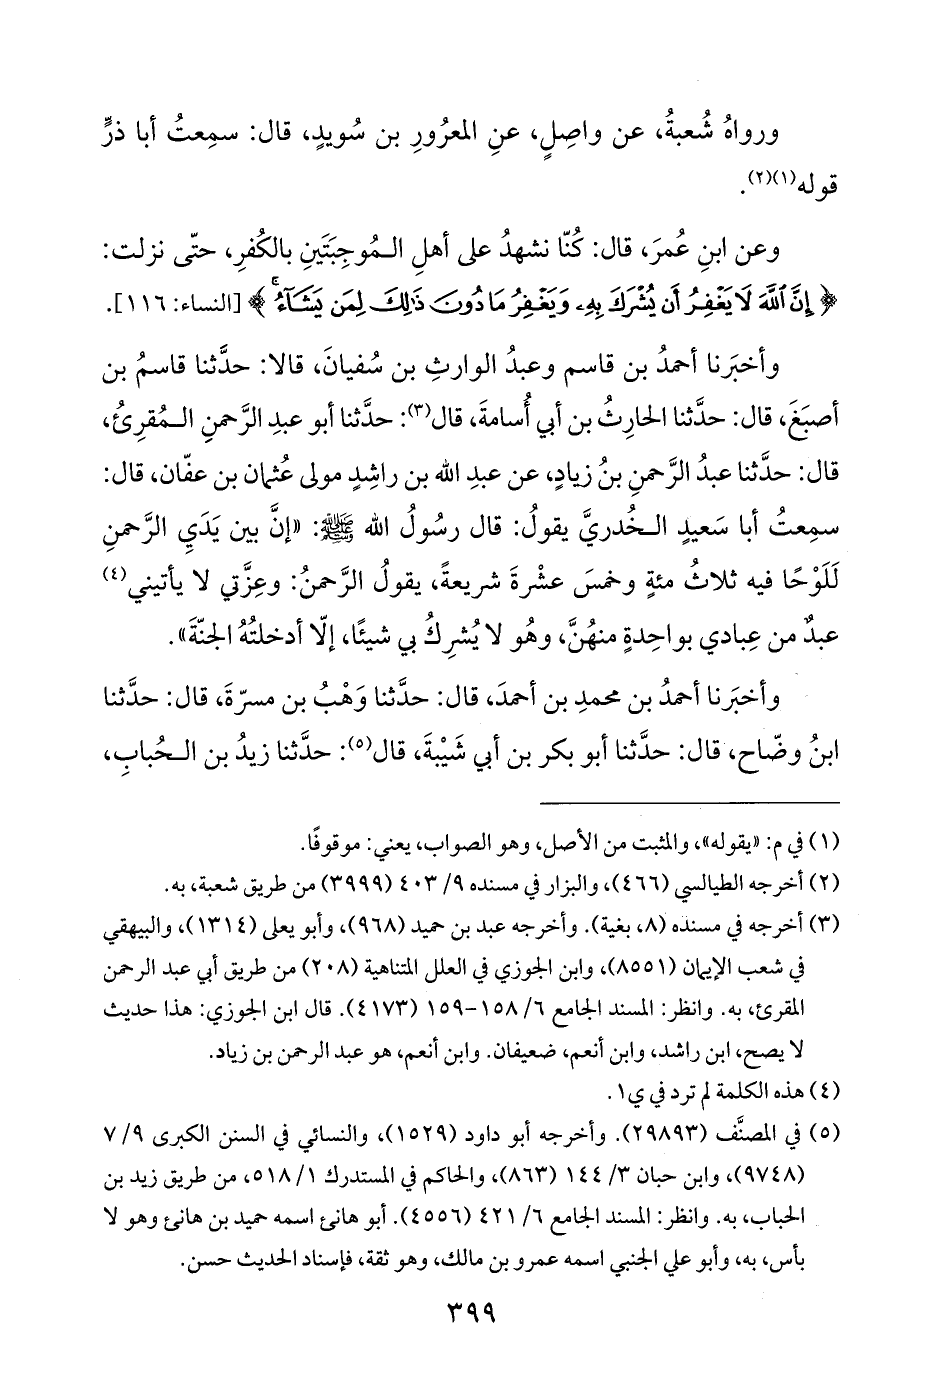 ورواهُ شُعبةُ، عن واصِلٍ، عنِ المعرُورِ بن سُويدٍ، قال: سمِعتُ أبا ذرٍّ
قوله(١)(٢).
وعن ابنِ عُمرَ، قال: كُنّا نشهدُ على أهلِ الـمُوجِبَتَينِ بالكُفرِ، حتّى نزلت:
﴿إِنَّ ٱللَّهَ لَا يَغْفِرُ أَن يُشْرَكَ بِهِۦ وَيَغْفِرُ مَا دُونَ ذَٰلِكَ لِمَن يَشَآءُ ۚ﴾ [النساء: ١١٦].
وأخبَرنا أحمدُ بن قاسم وعبدُ الوارثِ بن سُفيانَ، قالا: حدَّثنا قاسمُ بن
أصبَغَ، قال: حدَّثنا الحارِثُ بن أبي أُسامةَ، قال(٣): حدَّثنا أبو عبدِ الرَّحمنِ الـمُقرِئُ،
قال: حدَّثنا عبدُ الرَّحمنِ بنُ زيادٍ، عن عبدِ الله بن راشِدٍ مولى عُثمان بن عفّان، قال:
سمِعتُ أبا سَعيدٍ الـخُدريَّ يقولُ: قال رسُولُ الله ﷺ: «إنَّ بين يَدَيِ الرَّحمنِ
لَلَوْحًا فيه ثلاثُ مئةٍ وخمسَ عشْرةَ شريعةً، يقولُ الرَّحمنُ: وعِزَّتي لا يأتيني(٤)
عبدٌ من عِبادي بواحِدةٍ منهُنَّ، وهُو لا يُشرِكُ بي شيئًا، إلّا أدخلتُهُ الجنّةَ».
وأخبَرنا أحمدُ بن محمدِ بن أحمدَ، قال: حدَّثنا وَهْبُ بن مسرّةَ، قال: حدَّثنا
ابنُ وضّاح، قال: حدَّثنا أبو بكر بن أبي شَيْبةَ، قال(٥): حدَّثنا زيدُ بن الـحُبابِ،
(١) في م: «يقوله»، والمثبت من الأصل، وهو الصواب، يعني: موقوفًا.
(٢) أخرجه الطيالسي (٤٦٦)، والبزار في مسنده ٩/ ٤٠٣ (٣٩٩٩) من طريق شعبة، به.
(٣) أخرجه في مسنده (٨، بغية). وأخرجه عبد بن حميد (٩٦٨)، وأبو يعلى (١٣١٤)، والبيهقي
في شعب الإيمان (٨٥٥١)، وابن الجوزي في العلل المتناهية (٢٠٨) من طريق أبي عبد الرحمن
المقرئ، به. وانظر: المسند الجامع ٦/ ١٥٨-١٥٩ (٤١٧٣). قال ابن الجوزي: هذا حديث
لا يصح، ابن راشد، وابن أنعم، ضعيفان. وابن أنعم، هو عبد الرحمن بن زياد.
(٤) هذه الكلمة لم ترد في ي١.
(٥) في المصنَّف (٢٩٨٩٣). وأخرجه أبو داود (١٥٢٩)، والنسائي في السنن الكبرى ٩/ ٧
(٩٧٤٨)، وابن حبان ٣/ ١٤٤ (٨٦٣)، والحاكم في المستدرك ١/ ٥١٨، من طريق زيد بن
الحباب، به. وانظر: المسند الجامع ٦/ ٤٢١ (٤٥٥٦). أبو هانئ اسمه حميد بن هانئ وهو لا
بأس، به، وأبو علي الجنبي اسمه عمرو بن مالك، وهو ثقة، فإسناد الحديث حسن.
٣٩٩